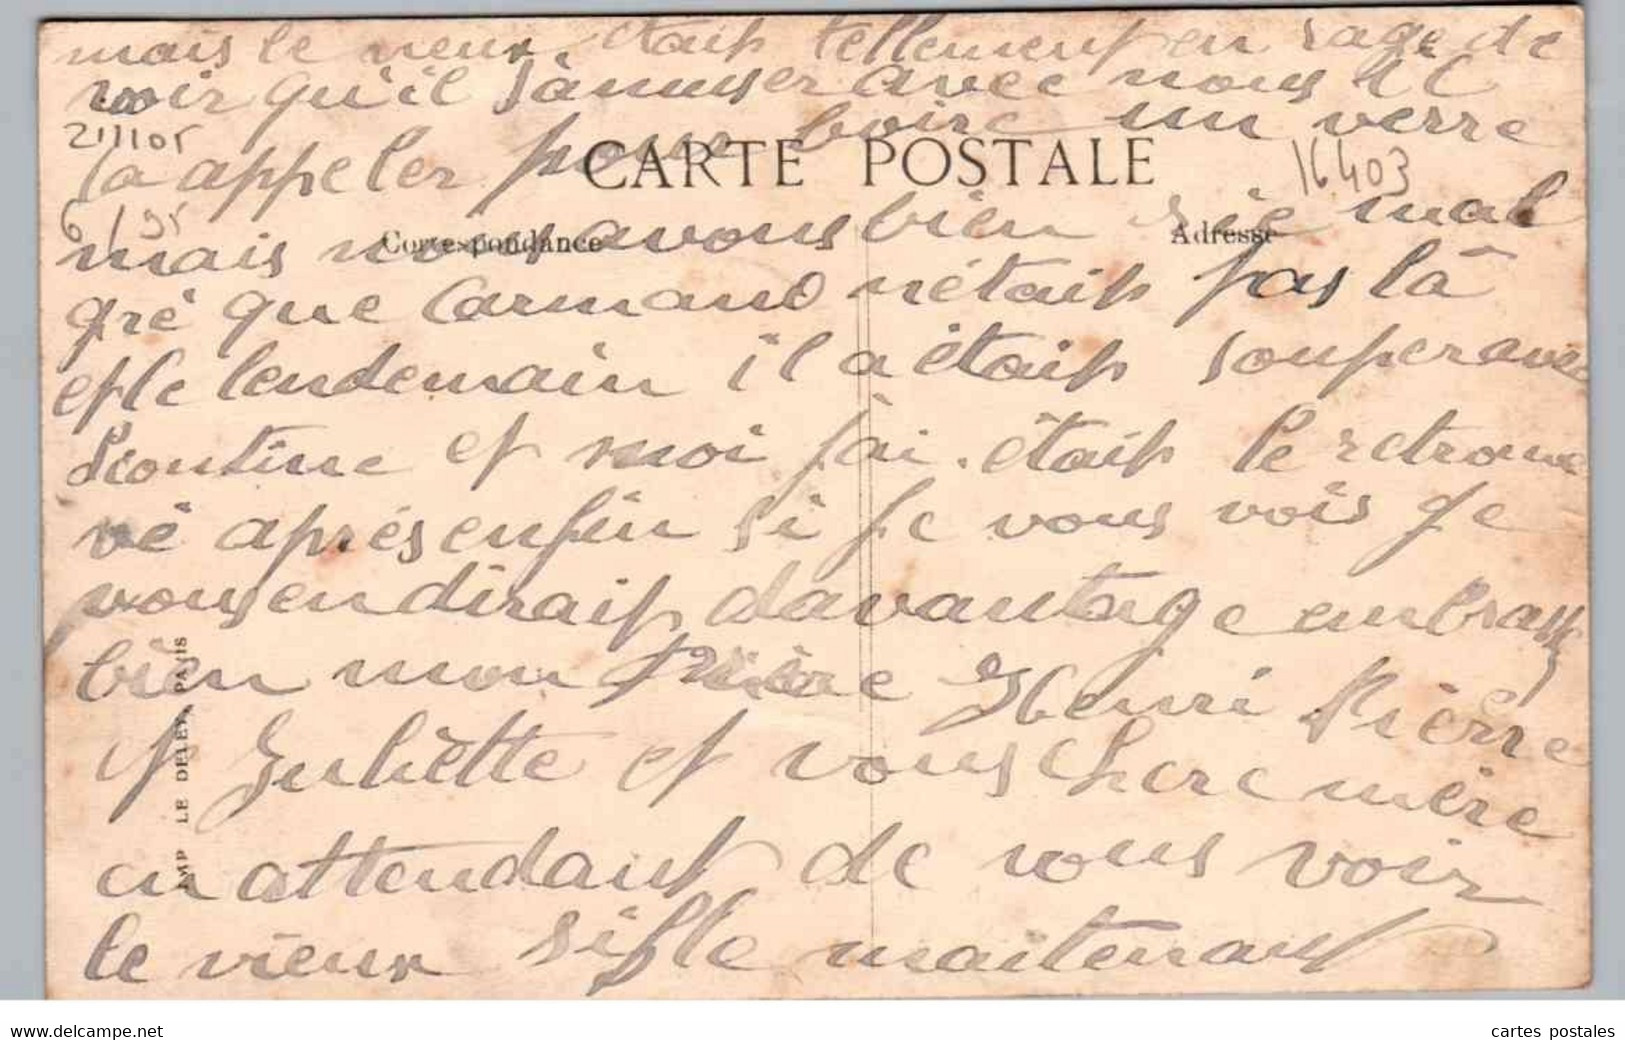 mais le vieux étais tellement en rage de
voir qu'il s'amuser avec nous il
21/1105
la appeler pour boire un verre
CARTE POSTALE
16.403
6/95
mais nous avous bien rie mal
Correspondance
Adresse
gré que Carmand n'étais pas là
et le lendemain il a étais souper avec
Léontine et moi j'ai étais le retrouve
vé aprés enfin si je vous vois je
vous en dirais davantage embrassez
bien mon frère Henri Pierre
et Juliette et vous chere mère
en attendant de vous voir
le vieux sifle maitenant
IMP LE DELEY, PARIS
www.delcampe.net
cartes postales